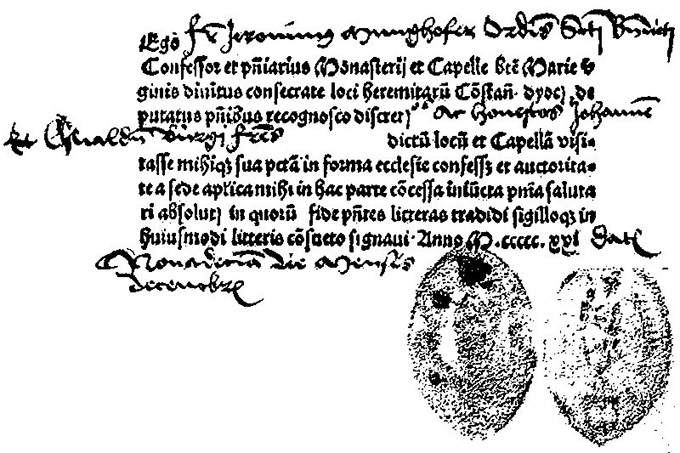 Ego fr Jeronimus Munghofer Ordis Scti Bndicti
Confessor et pñiarius Monasterij et Capelle btē Marie v
ginis diuitus consecrate loci heremitarū Cōstañ. dyoc; de
putatus pñibus recognosco discret; ac honestos Johannē
et Oswaldū fres dictū locū et Capellā visi-
tasse mihiq; sua pctā in forma ecclesie confess; et auctorita-
te a sede aplica mihi in hac parte cōcessa iniūcta pñia saluta
ri absolut; in quorū fide pñtes litteras tradidi sigilloq; in
huiusmodi litteris cōsueto signaui. Anno M.ccccc.xxi dat
die Mensis
Decembr